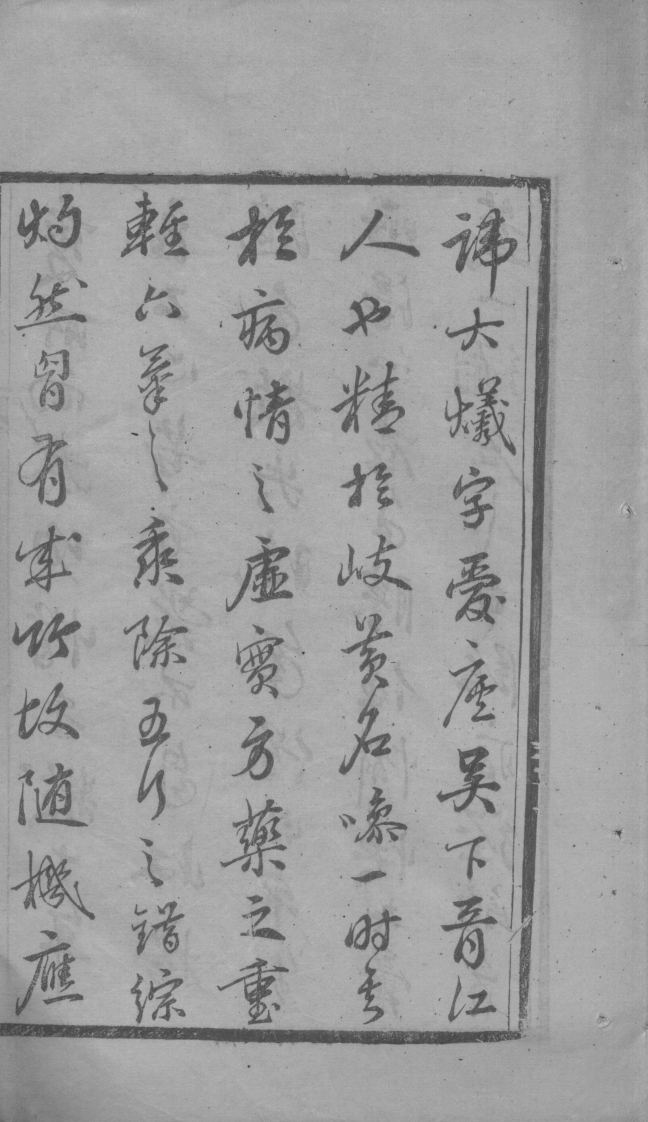 諱大爔字愛廬吳下胥江
人也精於岐黃名噪一时其
於病情之虛實方藥之重
輕六氣之乘除五行之錯綜
灼然胷有成竹故随機應